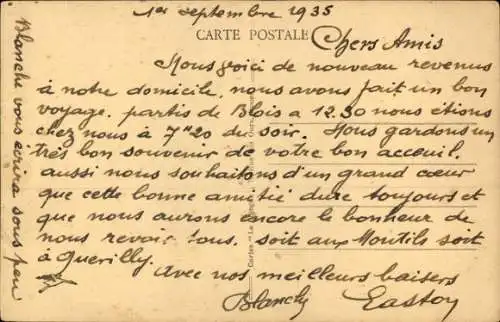 1er septembre 1935
CARTE POSTALE
Chers Amis
Nous voici de nouveau revenus
à notre domicile, nous avons fait un bon
voyage. partis de Blois a 12.30 nous étions
chez nous à 7h20 du soir. Nous gardons un
très bon souvenir de votre bon acceuil.
aussi nous souhaitons d'un grand cœur
que cette bonne amitié dure toujours et
que nous aurons encore le bonheur de
nous revoir tous. soit aux Montils soit
à Querilly.
Avec nos meilleurs baisers
Blanche Gaston
Blanche vous écrira sous peu